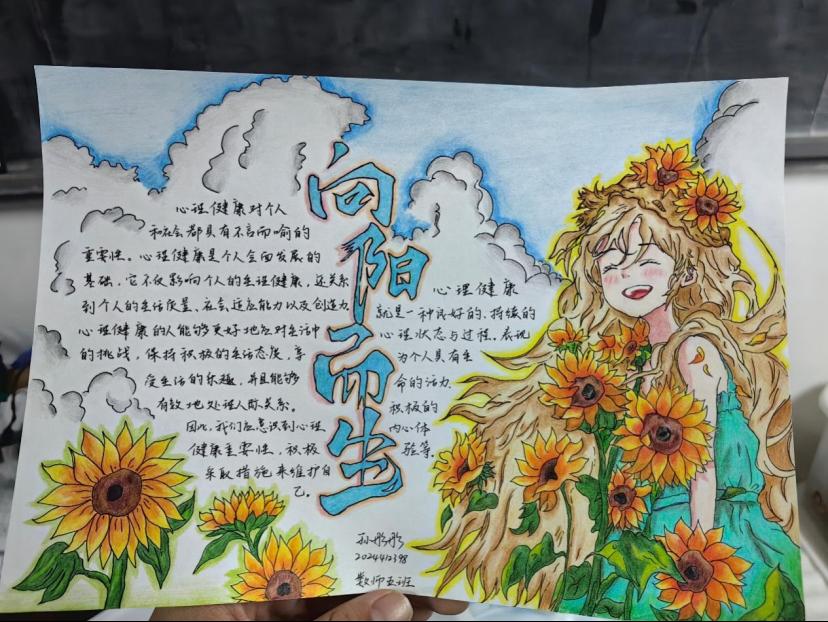 向阳而生
心理健康对个人
和社会都具有不言而喻的
重要性。心理健康是个人全面发展的
基础，它不仅影响个人的生理健康，还关系
到个人的生活质量、社会适应能力以及创造力
心理健康的人能够更好地应对生活中
的挑战，保持积极的生活态度，享
受生活的乐趣，并且能够
有效地处理人际关系。
因此，我们应意识到心理
健康重要性，积极
采取措施来维护自
己。
心理健康
就是一种良好的、持续的
心理状态与过程，表现
为个人具有生
命的活力
积极的
内心体
验等。
孙彤彤
2024412398
数师五班